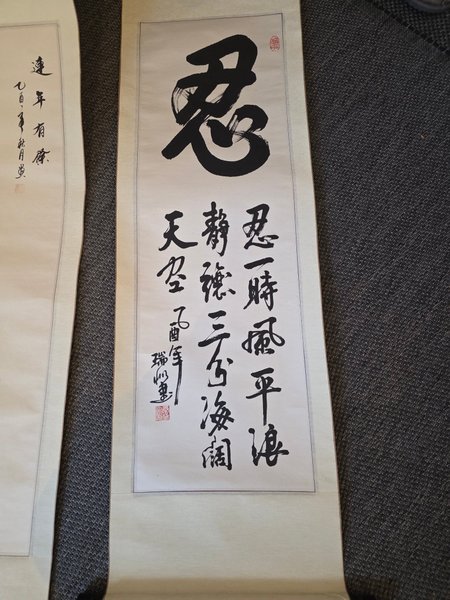 忍
忍一時風平浪
靜讓三分海闊
天空
乙酉年
瑞州書
連年有餘
乙酉年秋月